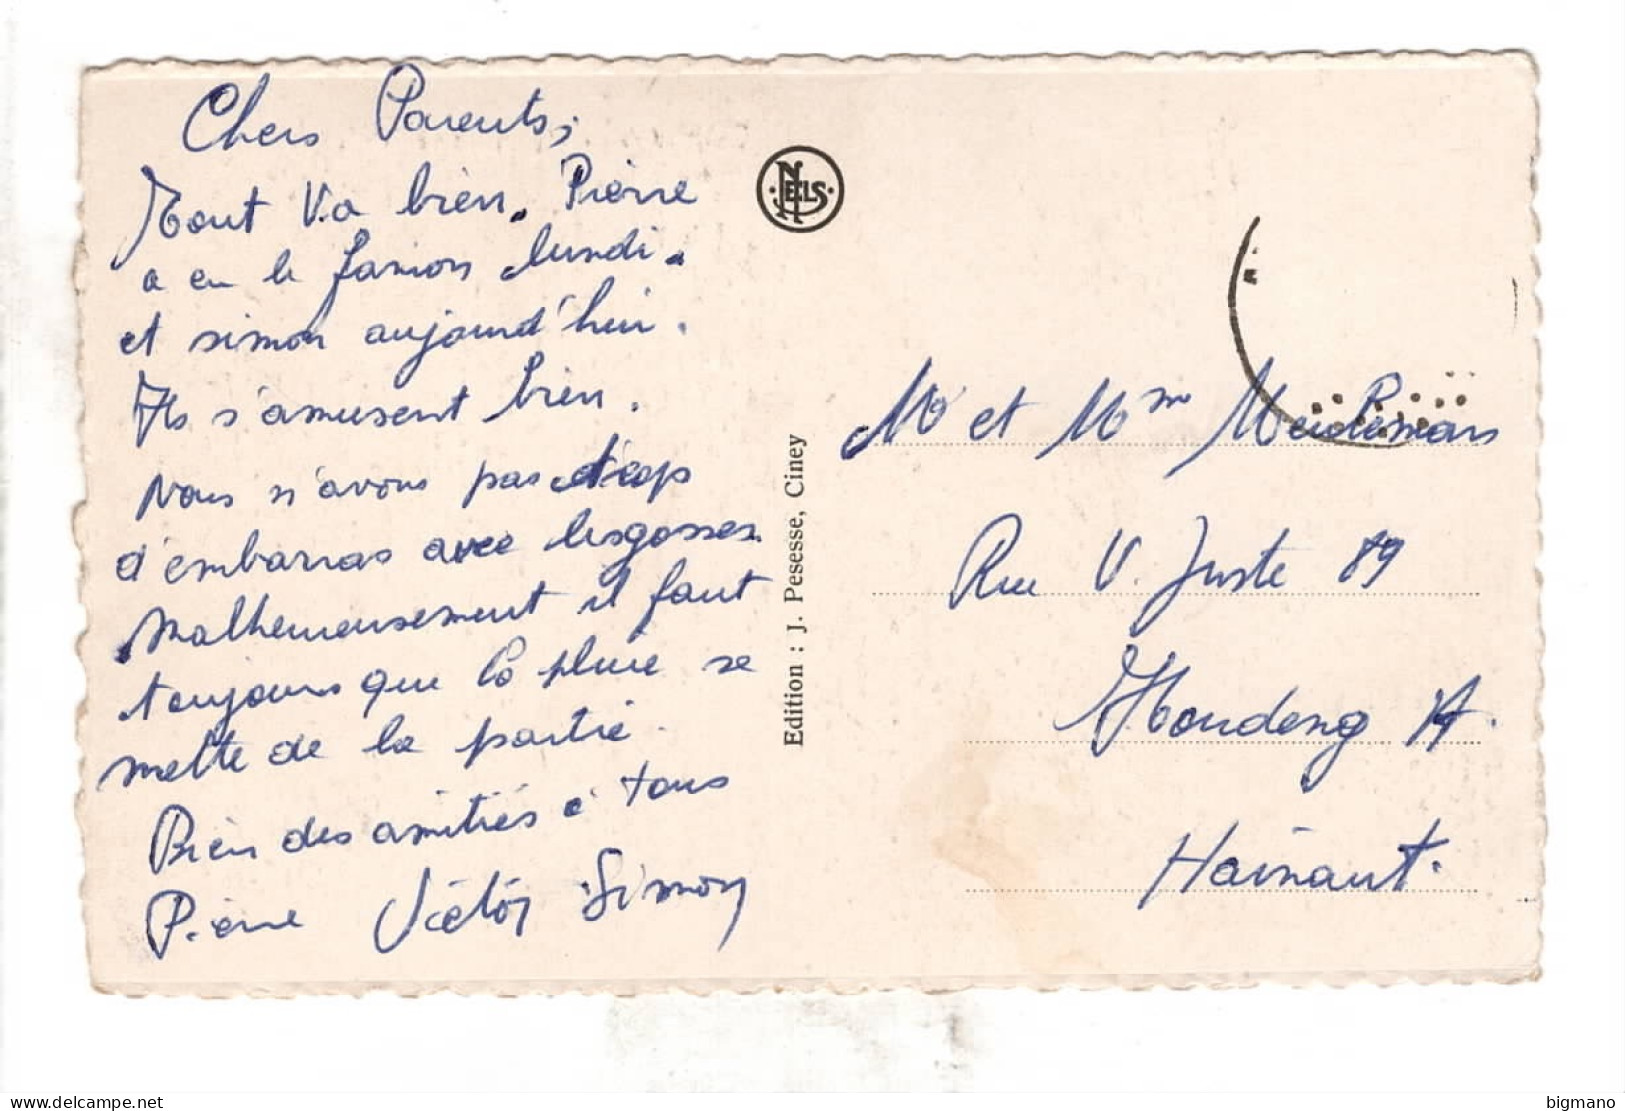 Chers Parents,
Tout va bien. Pierre
a eu le fanion lundi.
et simon aujourd'hui.
Ils s'amusent bien.
Nous n'avons pas trop
d'embarras avec les gosses.
Malheureusement il faut
toujours que la pluie se
mette de la partie.
Bien des amitiés à tous
Pierre Victor Simon
NELS
Edition : J. Pesesse, Ciney
Mr et Mme
Rue V. Juste 89
Houdeng
Hainaut.
bigmano
delcampe.net